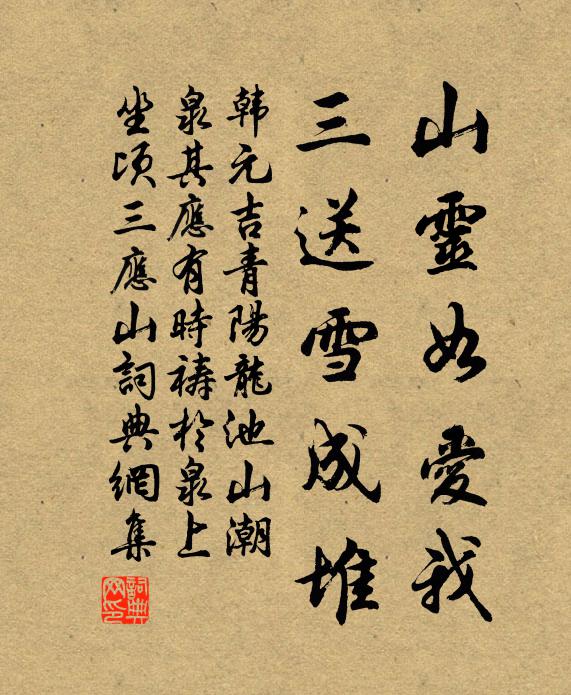 山靈如愛我
三送雪成堆
韩元吉青陽龍池山潮
泉其應有時禱於泉上
坐頃三應山詞典網集
詞典
网印